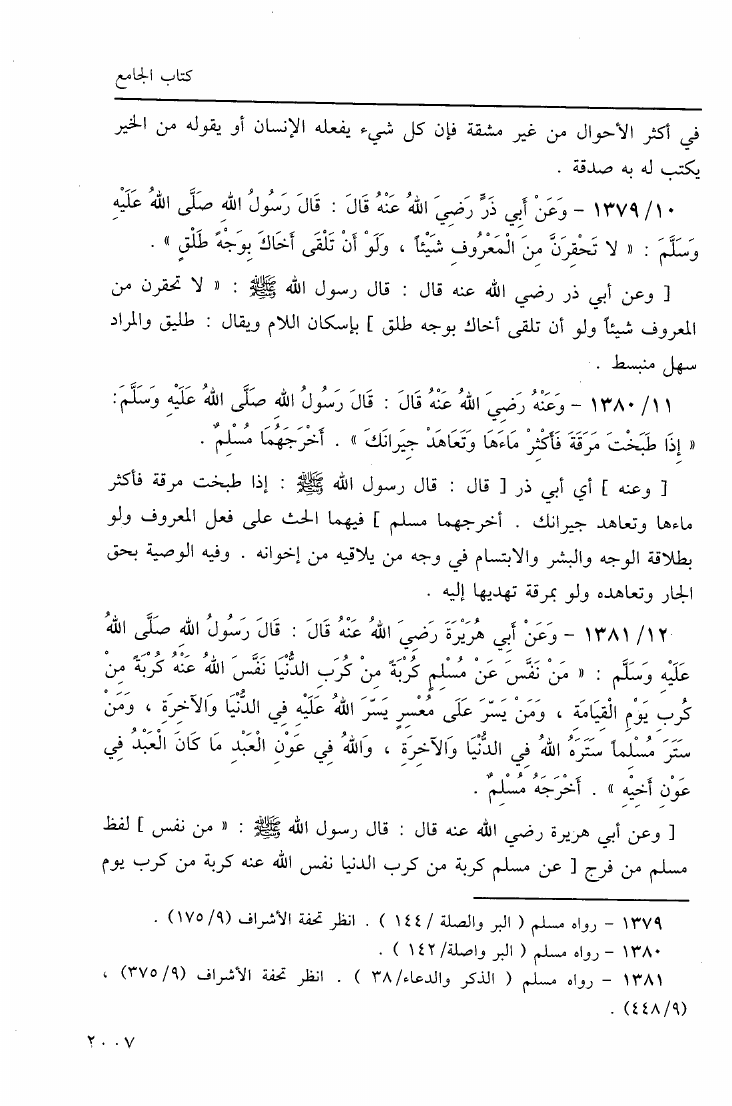 كتاب الجامع
في أكثر الأحوال من غير مشقة فإن كل شيء يفعله الإنسان أو يقوله من الخير
يكتب له به صدقة .
١٣٧٩/١٠ - وَعَنْ أَبِي ذَرٍّ رَضِيَ اللهُ عَنْهُ قَالَ : قَالَ رَسُولُ اللهِ صَلَّى اللهُ عَلَيْهِ
وَسَلَّمَ : « لا تَحْقِرَنَّ مِنَ الْمَعْرُوفِ شَيْئاً ، وَلَوْ أَنْ تَلْقَى أَخَاكَ بِوَجْهٍ طَلْقٍ » .
[ وعن أبي ذر رضي الله عنه قال : قال رسول الله ﷺ : « لا تحقرن من
المعروف شيئاً ولو أن تلقى أخاك بوجه طلق ] بإسكان اللام ويقال : طليق والمراد
سهل منبسط .
١٣٨٠/١١ - وَعَنْهُ رَضِيَ اللهُ عَنْهُ قَالَ : قَالَ رَسُولُ اللهِ صَلَّى اللهُ عَلَيْهِ وَسَلَّمَ:
« إِذَا طَبَخْتَ مَرَقَةَ فَأَكْثِرْ مَاءَهَا وَتَعَاهَدْ جِيرَانَكَ » . أَخْرَجَهُمَا مُسْلِمٌ .
[ وعنه ] أي أبي ذر [ قال : قال رسول الله ﷺ : إذا طبخت مرقة فأكثر
ماءها وتعاهد جيرانك . أخرجهما مسلم ] فيهما الحث على فعل المعروف ولو
بطلاقة الوجه والبشر والابتسام في وجه من يلاقيه من إخوانه . وفيه الوصية بحق
الجار وتعاهده ولو بمرقة تهديها إليه .
١٣٨١/١٢ - وَعَنْ أَبِي هُرَيْرَةَ رَضِيَ اللهُ عَنْهُ قَالَ : قَالَ رَسُولُ اللهِ صَلَّى اللهُ
عَلَيْهِ وَسَلَّم : « مَنْ نَفَّسَ عَنْ مُسْلِمٍ كُرْبَةً مِنْ كُرَبِ الدُّنْيَا نَفَّسَ اللهُ عَنْهُ كُرْبَةً مِنْ
كُرَبِ يَوْمِ الْقِيَامَةِ ، وَمَنْ يَسّرَ عَلَى مُعْسِرٍ يَسّرَ اللهُ عَلَيْهِ فِي الدُّنْيَا وَالآخِرَةِ ، وَمَنْ
سَتَرَ مُسْلِماً سَتَرَهُ اللهُ فِي الدُّنْيَا وَالآخِرَةِ ، وَاللهُ فِي عَوْنِ الْعَبْدِ مَا كَانَ الْعَبْدُ فِي
عَوْنِ أَخِيْهِ » . أَخْرَجَهُ مُسْلِمٌ .
[ وعن أبي هريرة رضي الله عنه قال : قال رسول الله ﷺ : « من نفس ] لفظ
مسلم من فرج [ عن مسلم كربة من كرب الدنيا نفس الله عنه كربة من كرب يوم
١٣٧٩ - رواه مسلم ( البر والصلة /١٤٤ ) . انظر تحفة الأشراف (١٧٥/٩) .
١٣٨٠ - رواه مسلم ( البر واصلة/١٤٢ ) .
١٣٨١ - رواه مسلم ( الذكر والدعاء/٣٨ ) . انظر تحفة الأشراف (٣٧٥/٩) ،
(٤٤٨/٩) .
٢٠٠٧